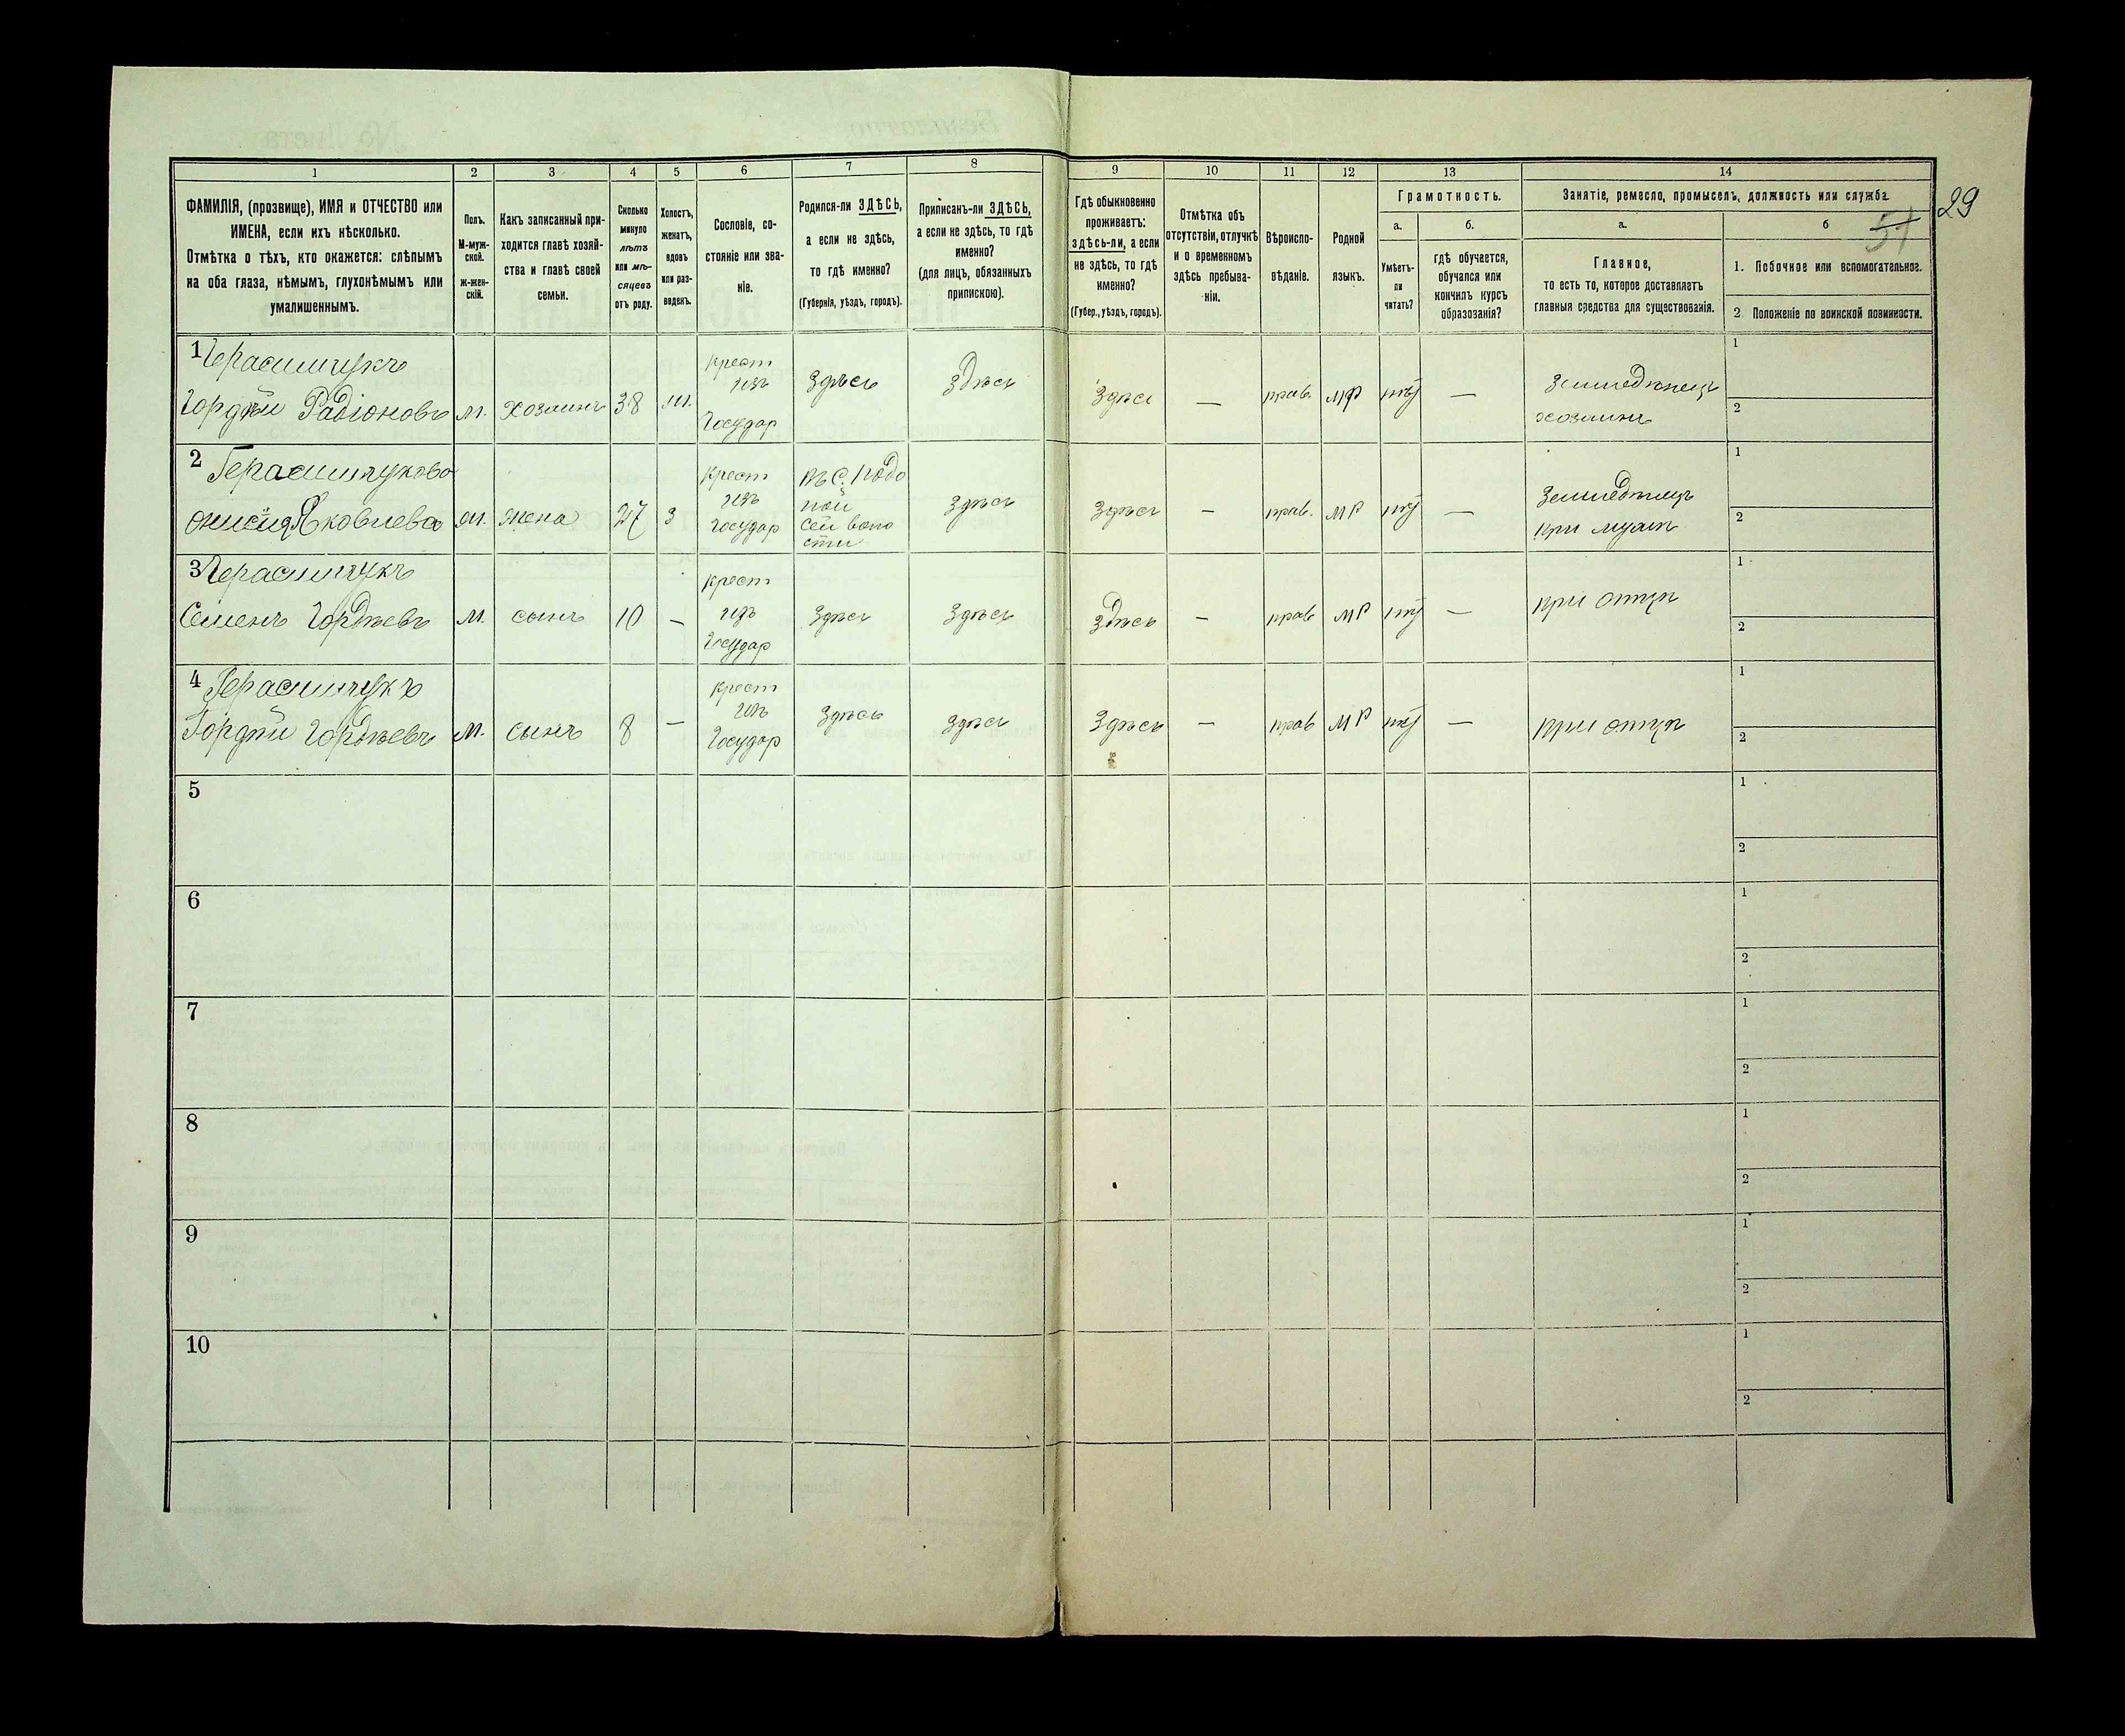 1
2
3
4
5
6
7
8
9
10
11
12
13
14
ФАМИЛІЯ, (прозвище), ИМЯ и ОТЧЕСТВО или
ИМЕНА, если ихъ нѣсколько.
Отмѣтка о тѣхъ, кто окажется: слѣпымъ
на оба глаза, нѣмымъ, глухонѣмымъ или
умалишеннымъ.
Полъ.
М-муж-
ской.
ж-жен-
скій.
Какъ записанный при-
ходится главѣ хозяй-
ства и главѣ своей
семьи.
Сколько
минуло
лѣтъ
или мѣ-
сяцевъ
отъ роду.
Холостъ,
женатъ,
вдовъ
или раз-
веденъ.
Сословіе, со-
стояніе или зва-
ніе.
Родился-ли ЗДѢСЬ,
а если не здѣсь,
то гдѣ именно?
(Губернія, уѣздъ, городъ).
Приписанъ-ли ЗДѢСЬ,
а если не здѣсь, то гдѣ
именно?
(для лицъ, обязанныхъ
припискою).
Гдѣ обыкновенно
проживаетъ:
здѣсь-ли, а если
не здѣсь, то гдѣ
именно?
(Губер., уѣздъ, городъ).
Отмѣтка объ
отсутствіи, отлучкѣ
и о временномъ
здѣсь пребыва-
ніи.
Вѣроиспо-
вѣданіе.
Родной
языкъ.
Грамотность.
а.
Умѣетъ-
ли
читать?
б.
гдѣ обучается,
обучался или
кончилъ курсъ
образованія?
Занятіе, ремесло, промыселъ, должность или служба
а.
Главное,
то есть то, которое доставляетъ
главныя средства для существованія.
б
1. Побочное или вспомогательное.
2 Положеніе по воинской повинности.
51
29
1 Герасимчукъ
Гордѣй Радіоновъ
м.
хозяинъ
38
крест
изъ
Государ
Здѣсь
здѣсь
Здѣсь
—
прав.
мр
—
Земледѣлецъ
хозяинъ
1
2
2 Герасимчукова
Яковлева
жена
27
з
крест
изъ
Государ
здѣсь
здѣсь
—
прав.
мр
—
Земледѣлец
при мужѣ
1
2
3 Герасимчукъ
Семенъ Гордѣевъ
м.
сынъ
10
—
крест
изъ
Государ
Здѣсь
Здѣсь
здѣсь
—
прав
мр
—
при отцѣ
1
2
4 Герасимчукъ
Гордѣй Гордѣевъ
м.
сынъ
8
—
крест
изъ
Государ
здѣсь
здѣсь
Здѣсь
—
прав
мр
—
при отцѣ
1
2
5
1
2
6
1
2
7
1
2
8
1
2
9
1
2
10
1
2